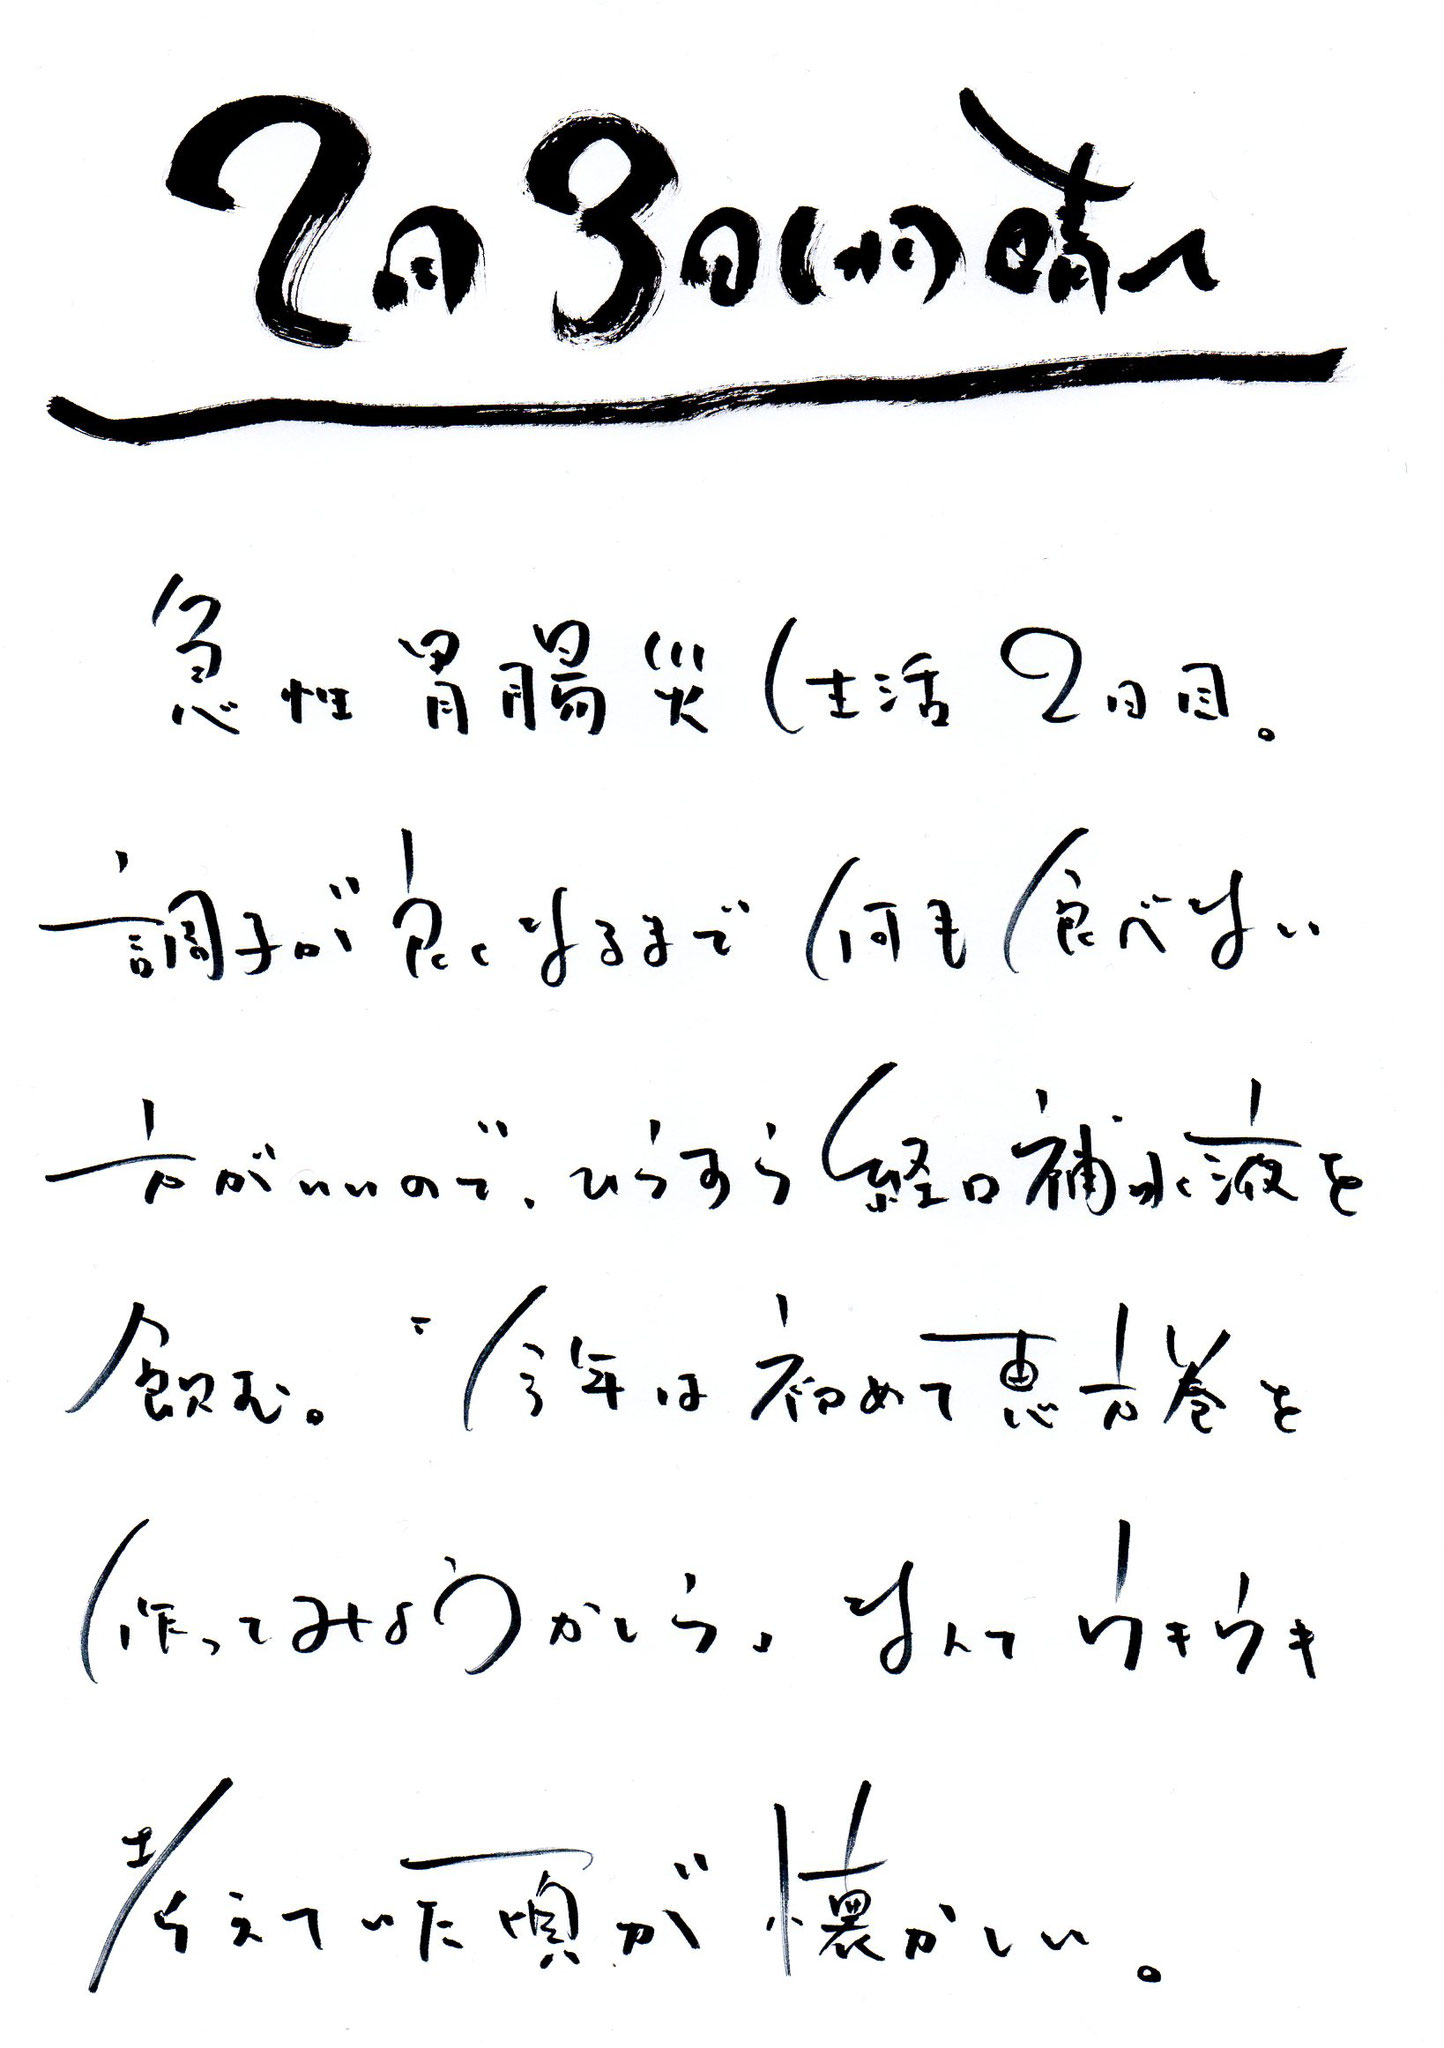 2月3日(水)晴れ
急性胃腸災生活2日目。
調子が良くなるまで何も食べない
方がいいので、ひらすら経口補水液を
飲む。〝今年は初めて恵方巻を
作ってみようかしら〟なんてウキウキ
考えていた頃が懐かしい。